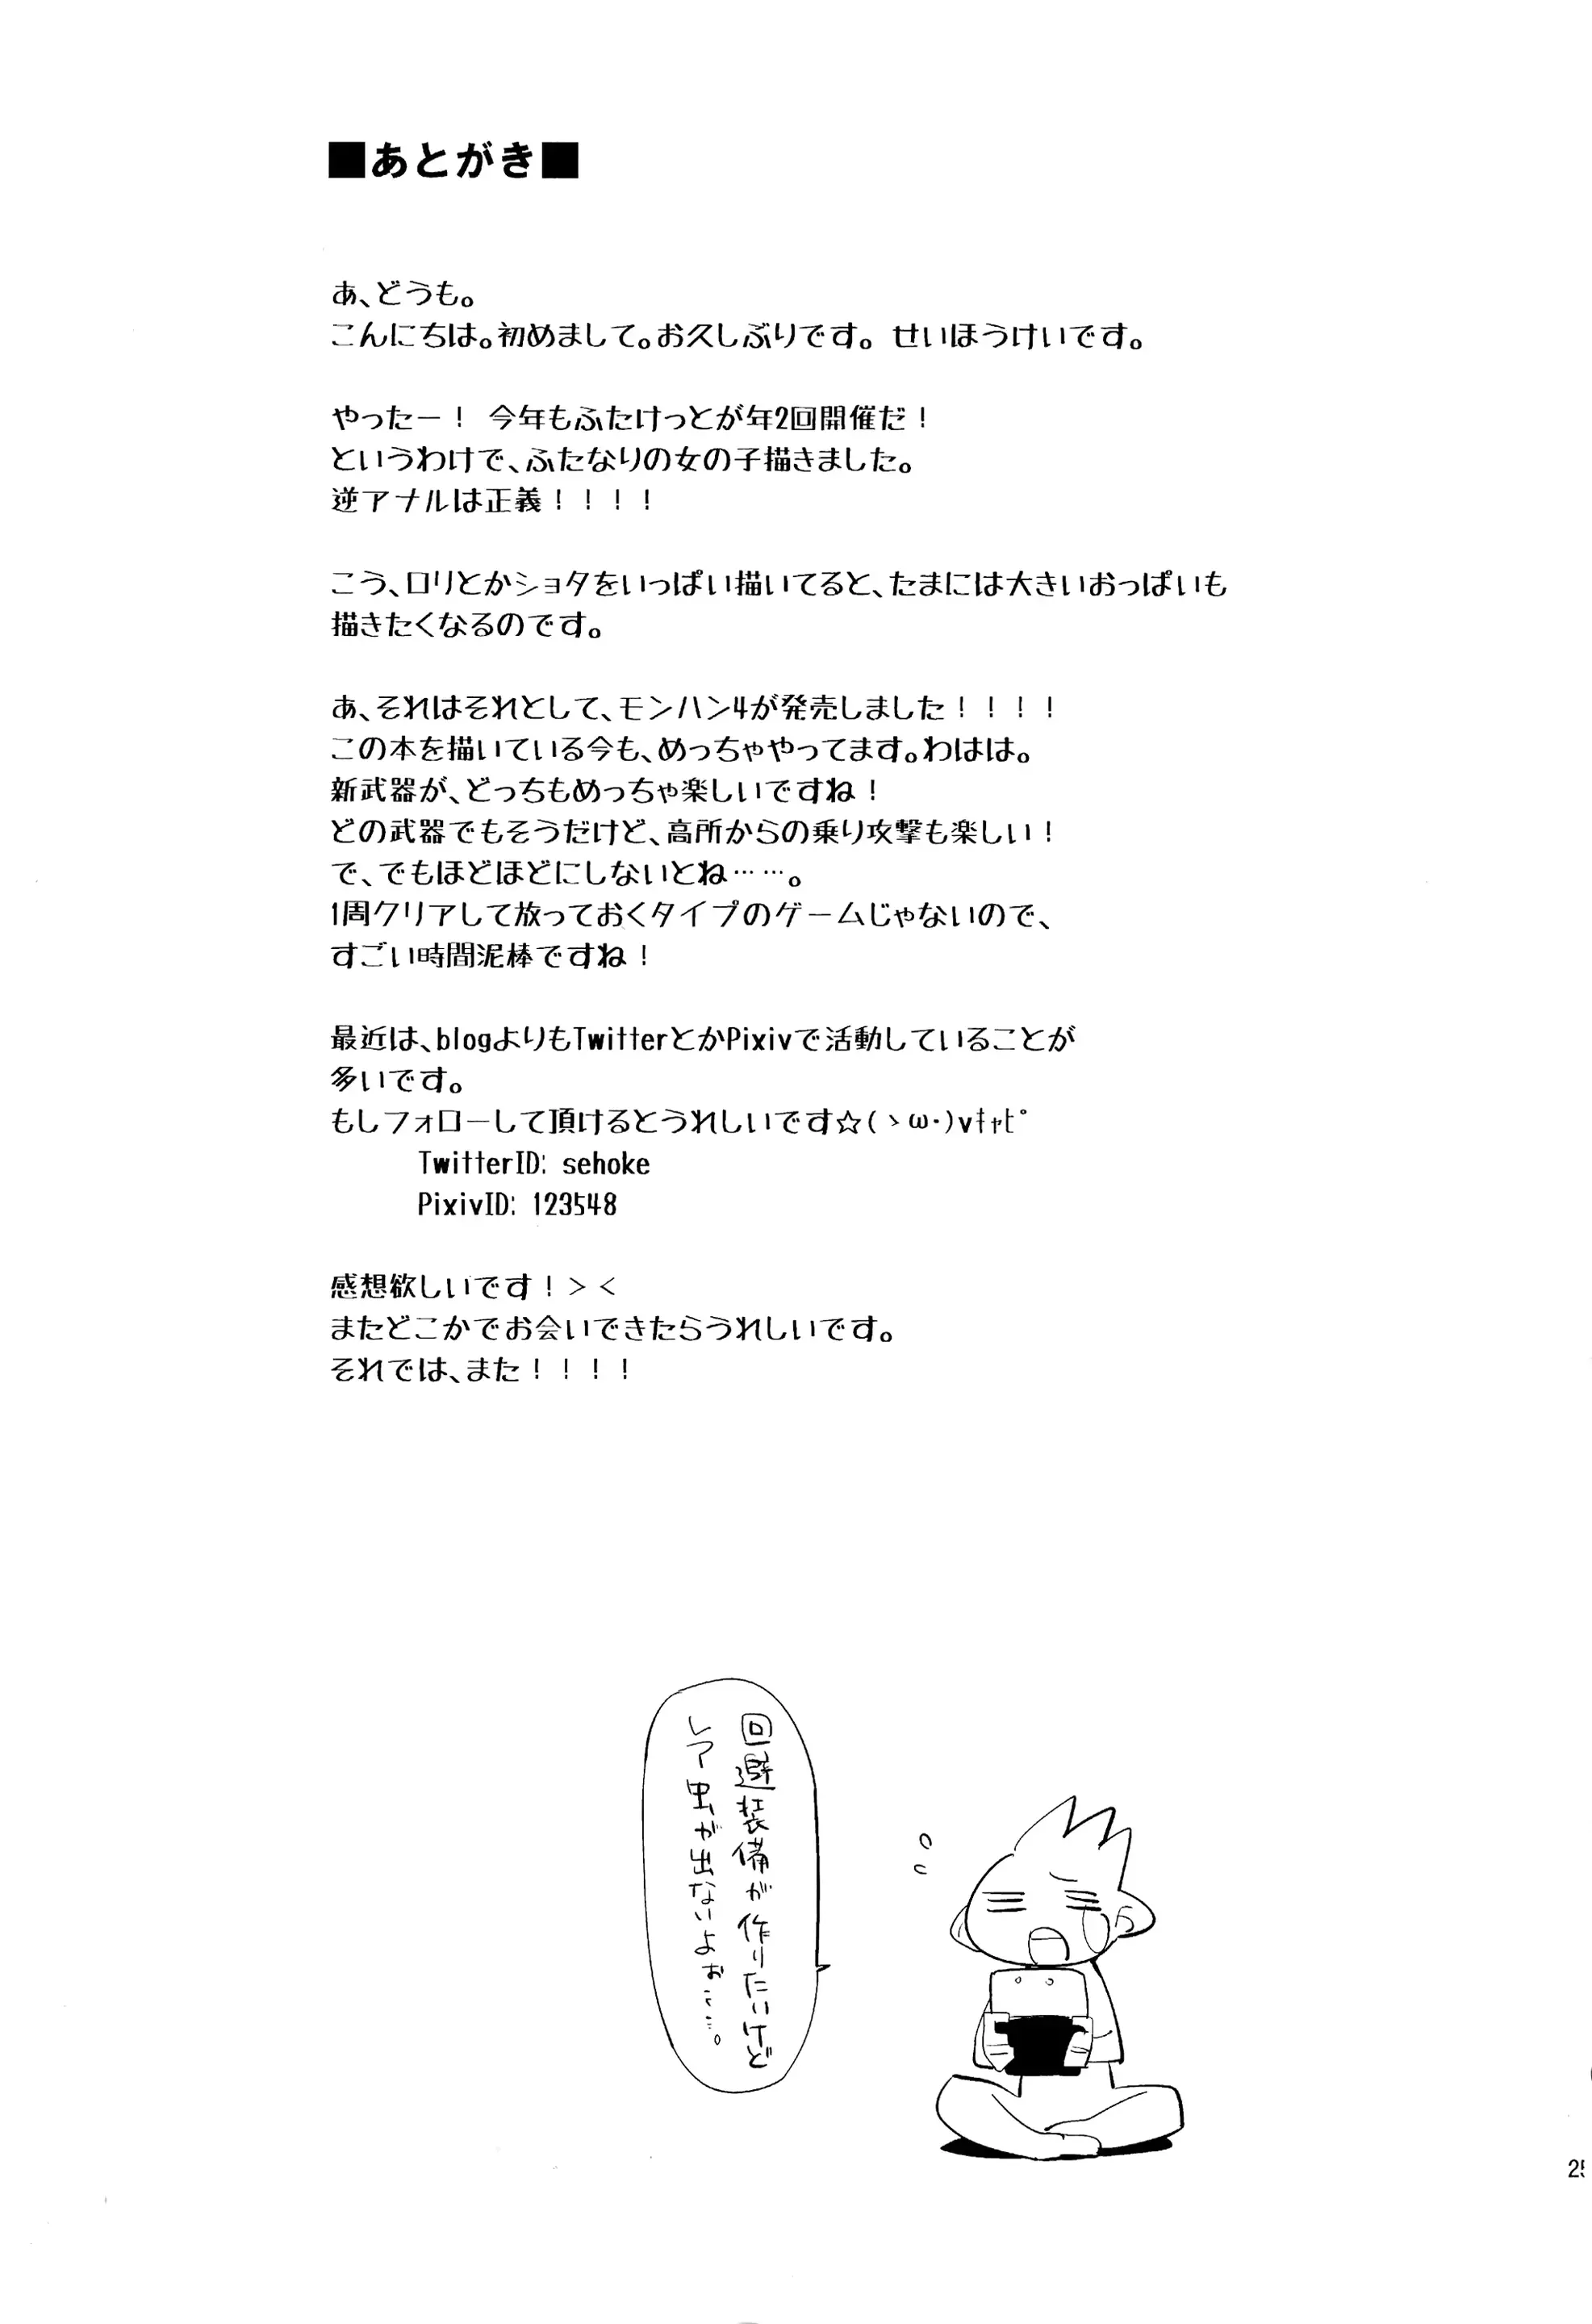 ■あとがき■
あ、どうも。
こんにちは。初めまして。お久しぶりです。 せいほうけいです。
やったー！ 今年もふたけっとが年2回開催だ！
というわけで、ふたなりの女の子描きました。
逆アナルは正義！！！！
こう、ロリとかショタをいっぱい描いてると、たまには大きいおっぱいも
描きたくなるのです。
あ、それはそれとして、モンハン4が発売しました！！！！
この本を描いている今も、めっちゃやってます。わはは。
新武器が、どっちもめっちゃ楽しいですね！
どの武器でもそうだけど、高所からの乗り攻撃も楽しい！
で、でもほどほどにしないとね……。
1周クリアして放っておくタイプのゲームじゃないので、
すごい時間泥棒ですね！
最近は、blogよりもTwitterとかPixivで活動していることが
多いです。
もしフォローして頂けるとうれしいです☆(ゝω･)vｷｬﾋﾟ
TwitterID: sehoke
PixivID: 123548
感想欲しいです！＞＜
またどこかでお会いできたらうれしいです。
それでは、また！！！！
回避装備が作りたいけど
レア虫が出ないよぉ……。